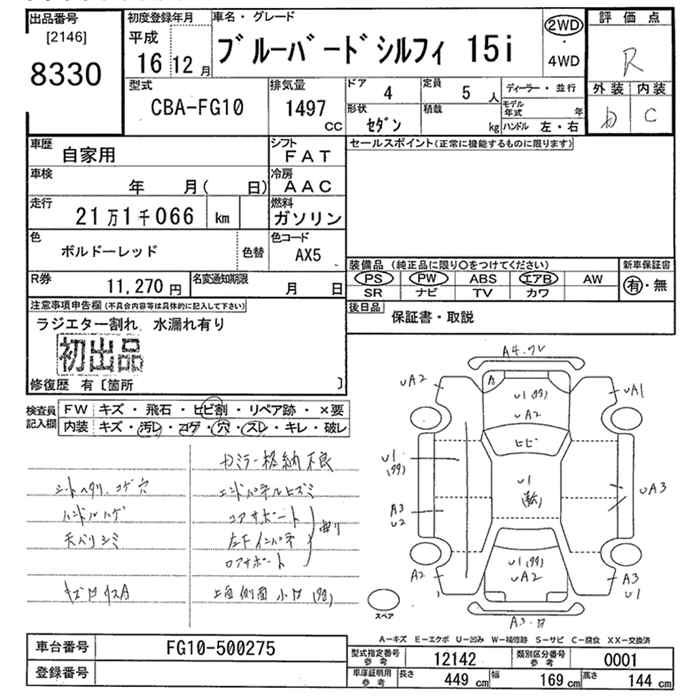 出品番号
[2146]
8330
初度登録年月
平成
16 12 月
車名・グレード
ブルーバードシルフィ 15i
2WD
・
4WD
評価点
R
外装 内装
C
型式
CBA-FG10
排気量
1497
CC
ドア
4
定員
5 人
ディーラー・並行
形状
セダン
積載
kg
モデル年式 年
ハンドル 左・右
車歴
自家用
シフト
FAT
車検
年 月( 日)
冷房
AAC
走行
21万1千066 km
燃料
ガソリン
色
ボルドーレッド
色替
色コード
AX5
R券
11,270 円
名変通知期限
月 日
セールスポイント(正常に機能するものに限ります)
装備品 (純正品に限り〇をつけてください)
PS PW ABS エアB AW
SR ナビ TV カワ
新車保証書
有・無
後日品
保証書・取説
注意事項申告欄(不具合内容等は具体的に記入して下さい)
ラジエター割れ 水漏れ有り
初出品
修復歴 有〔箇所 〕
検査員記入欄
FW キズ・飛石・ヒビ割・リペア跡・×要
内装 キズ・汚レ・コゲ・穴・スレ・キレ・破レ
右ミラー格納不良
シートヘタリ、コゲ穴
エンドパネルヒズミ
ハンドルハゲ
コアサポート
天バリシミ
左下インパネ
ロアサポート
曲り
A4.ワレ
UA2
A
U1
UA2
UA1
ヒビ
U1
U1
A3
U2
UA3
A2
U1
UA2
A3
U1
スペア
A-キズ E-エクボ U-凹み W-補修跡 S-サビ C-腐食 XX-交換済
車台番号
FG10-500275
登録番号
型式指定番号 参考
12142
類別区分番号 参考
0001
車庫証明用 参考
長さ 449 cm
幅 169 cm
高さ 144 cm